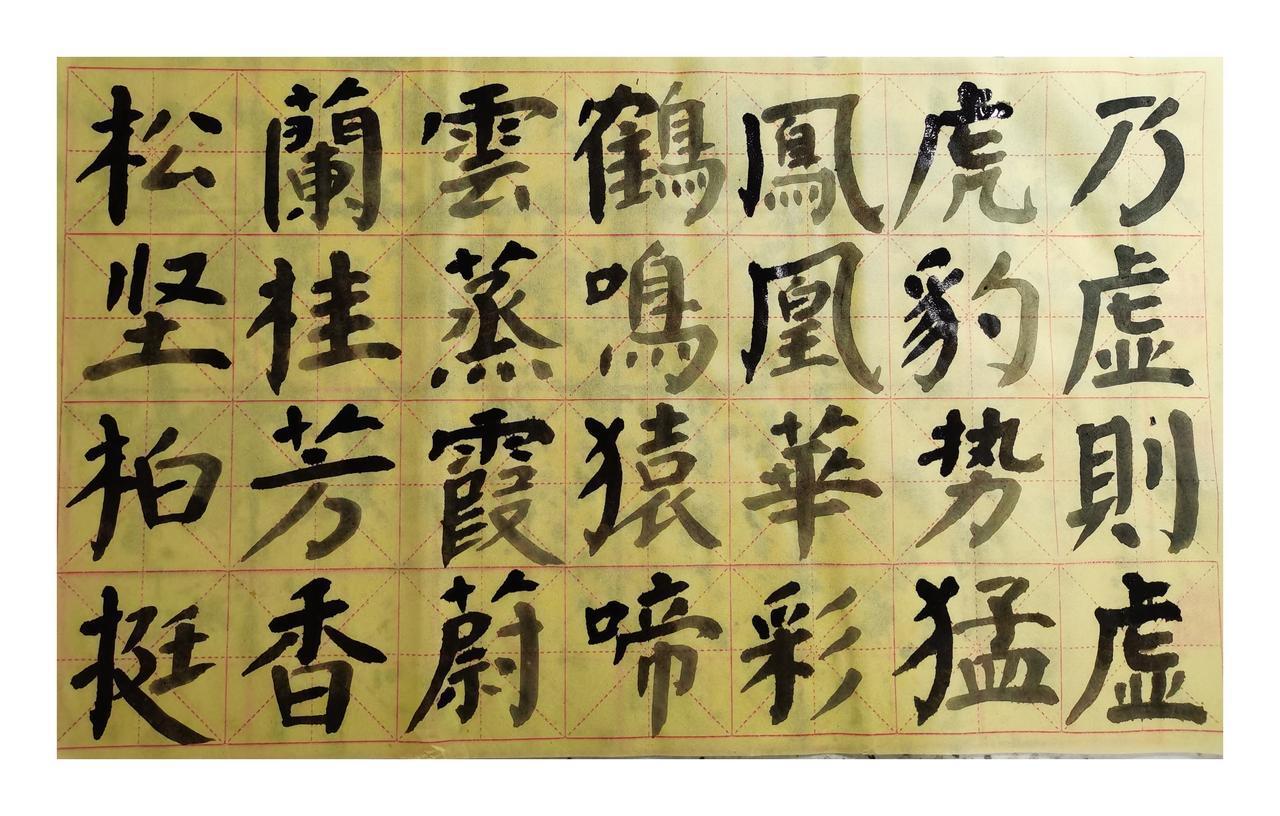 乃虚則虚
虎豹势猛
鳳凰華彩
鶴鳴猿啼
雲蒸霞蔚
蘭桂芳香
松坚柏挺